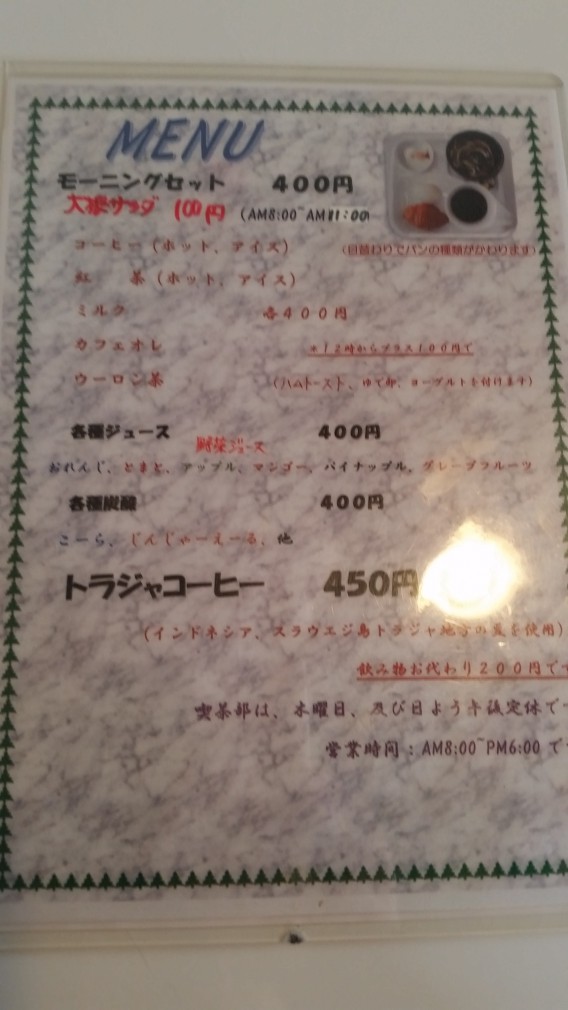 MENU
モーニングセット 400円
大根サラダ 100円 (AM8:00~AM11:00)
コーヒー（ホット、アイス） （日替わりでパンの種類がかわります）
紅 茶（ホット、アイス）
ミルク 各400円
カフェオレ *12時からプラス100円で
ウーロン茶 （ハムトースト、ゆで卵、ヨーグルトを付けます）
各種ジュース 400円
野菜ジュース
おれんじ、とまと、アップル、マンゴー、パイナップル、グレープフルーツ
各種炭酸 400円
こーら、じんじゃーえーる、他
トラジャコーヒー 450円
（インドネシア、スラウエジ島トラジャ地方の豆を使用）
飲み物お代わり200円で
喫茶部は、木曜日、及び日よう午後定休で
営業時間：AM8:00~PM6:00 で